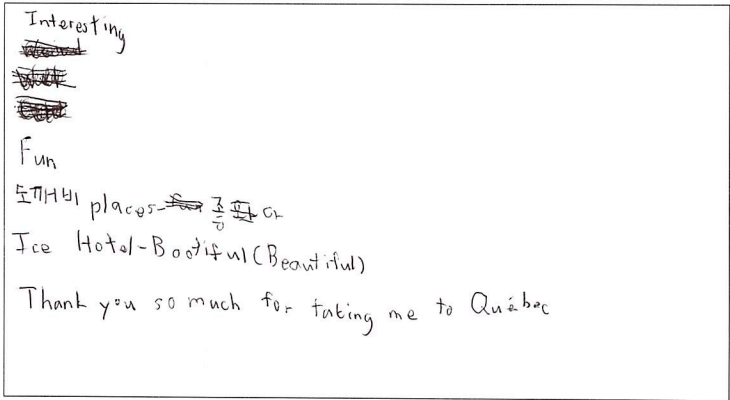 Interesting
Fun
도깨비 places-
Ice Hotel-Bootiful(Beautiful)
Thank you so much for taking me to Québec